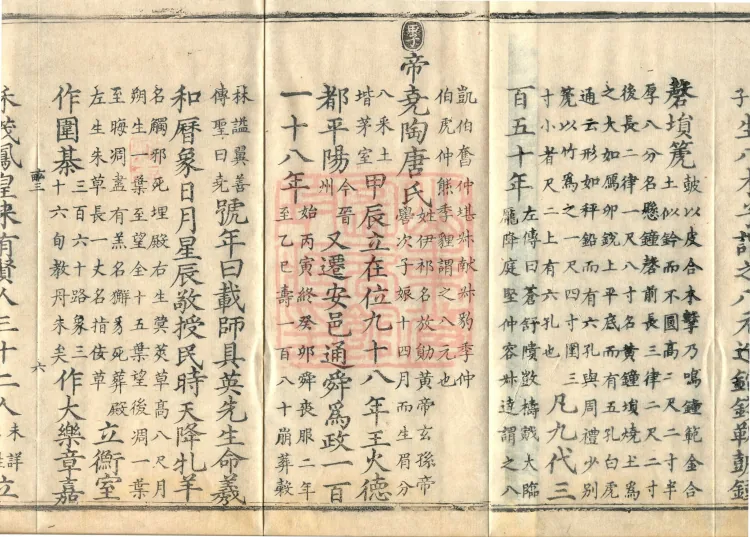 磬塤篪
鼓以皮合木擊乃鳴鐘範金合
土似鈴而不圓高二尺二寸半
厚八分名懸鐘磬前長三律二尺二寸
後長二律一尺八寸名黃鐘塤燒土爲
之大如鴈卯銳上平底而有五孔白虎
通云形如秤鉛而有六孔與周禮少別
篪以竹爲之一尺四寸圍三
寸小者尺二上有六孔也
凡九代三
百五十年
左傳曰蒼舒隤敳檮戭大臨
龐降庭堅仲容叔達謂之八
凱伯奮仲堪叔献叔豹季仲
伯虎仲熊季貍謂之八元也
帝堯陶唐氏
姓伊祁名放勛黃帝玄孫帝
嚳次子娠十四月而生眉分
八采土
堦茅室
甲辰立在位九十八年王火德
都平陽
今晉
州
又遷安邑通舜爲政一百
一十八年
始丙寅終癸卯舜喪服二年
至乙巳壽一百一十八崩葬穀
林謚翼善
傳聖曰堯
號年曰載師具英先生命羲
和曆象日月星辰敬授民時天降羊
名觸邪死埋殿右生蓂莢草高八尺月
朔生一葉至望全十五葉望後凋一葉
至晦凋盡有羔名獬豸死葬殿
左生朱草長一丈名指佞草
立衢室
作圍棊
三百六十路象三
十六旬教丹朱矣
作大樂章嘉
六
禾茂鳳皇來有賢人三十二人
未詳
立